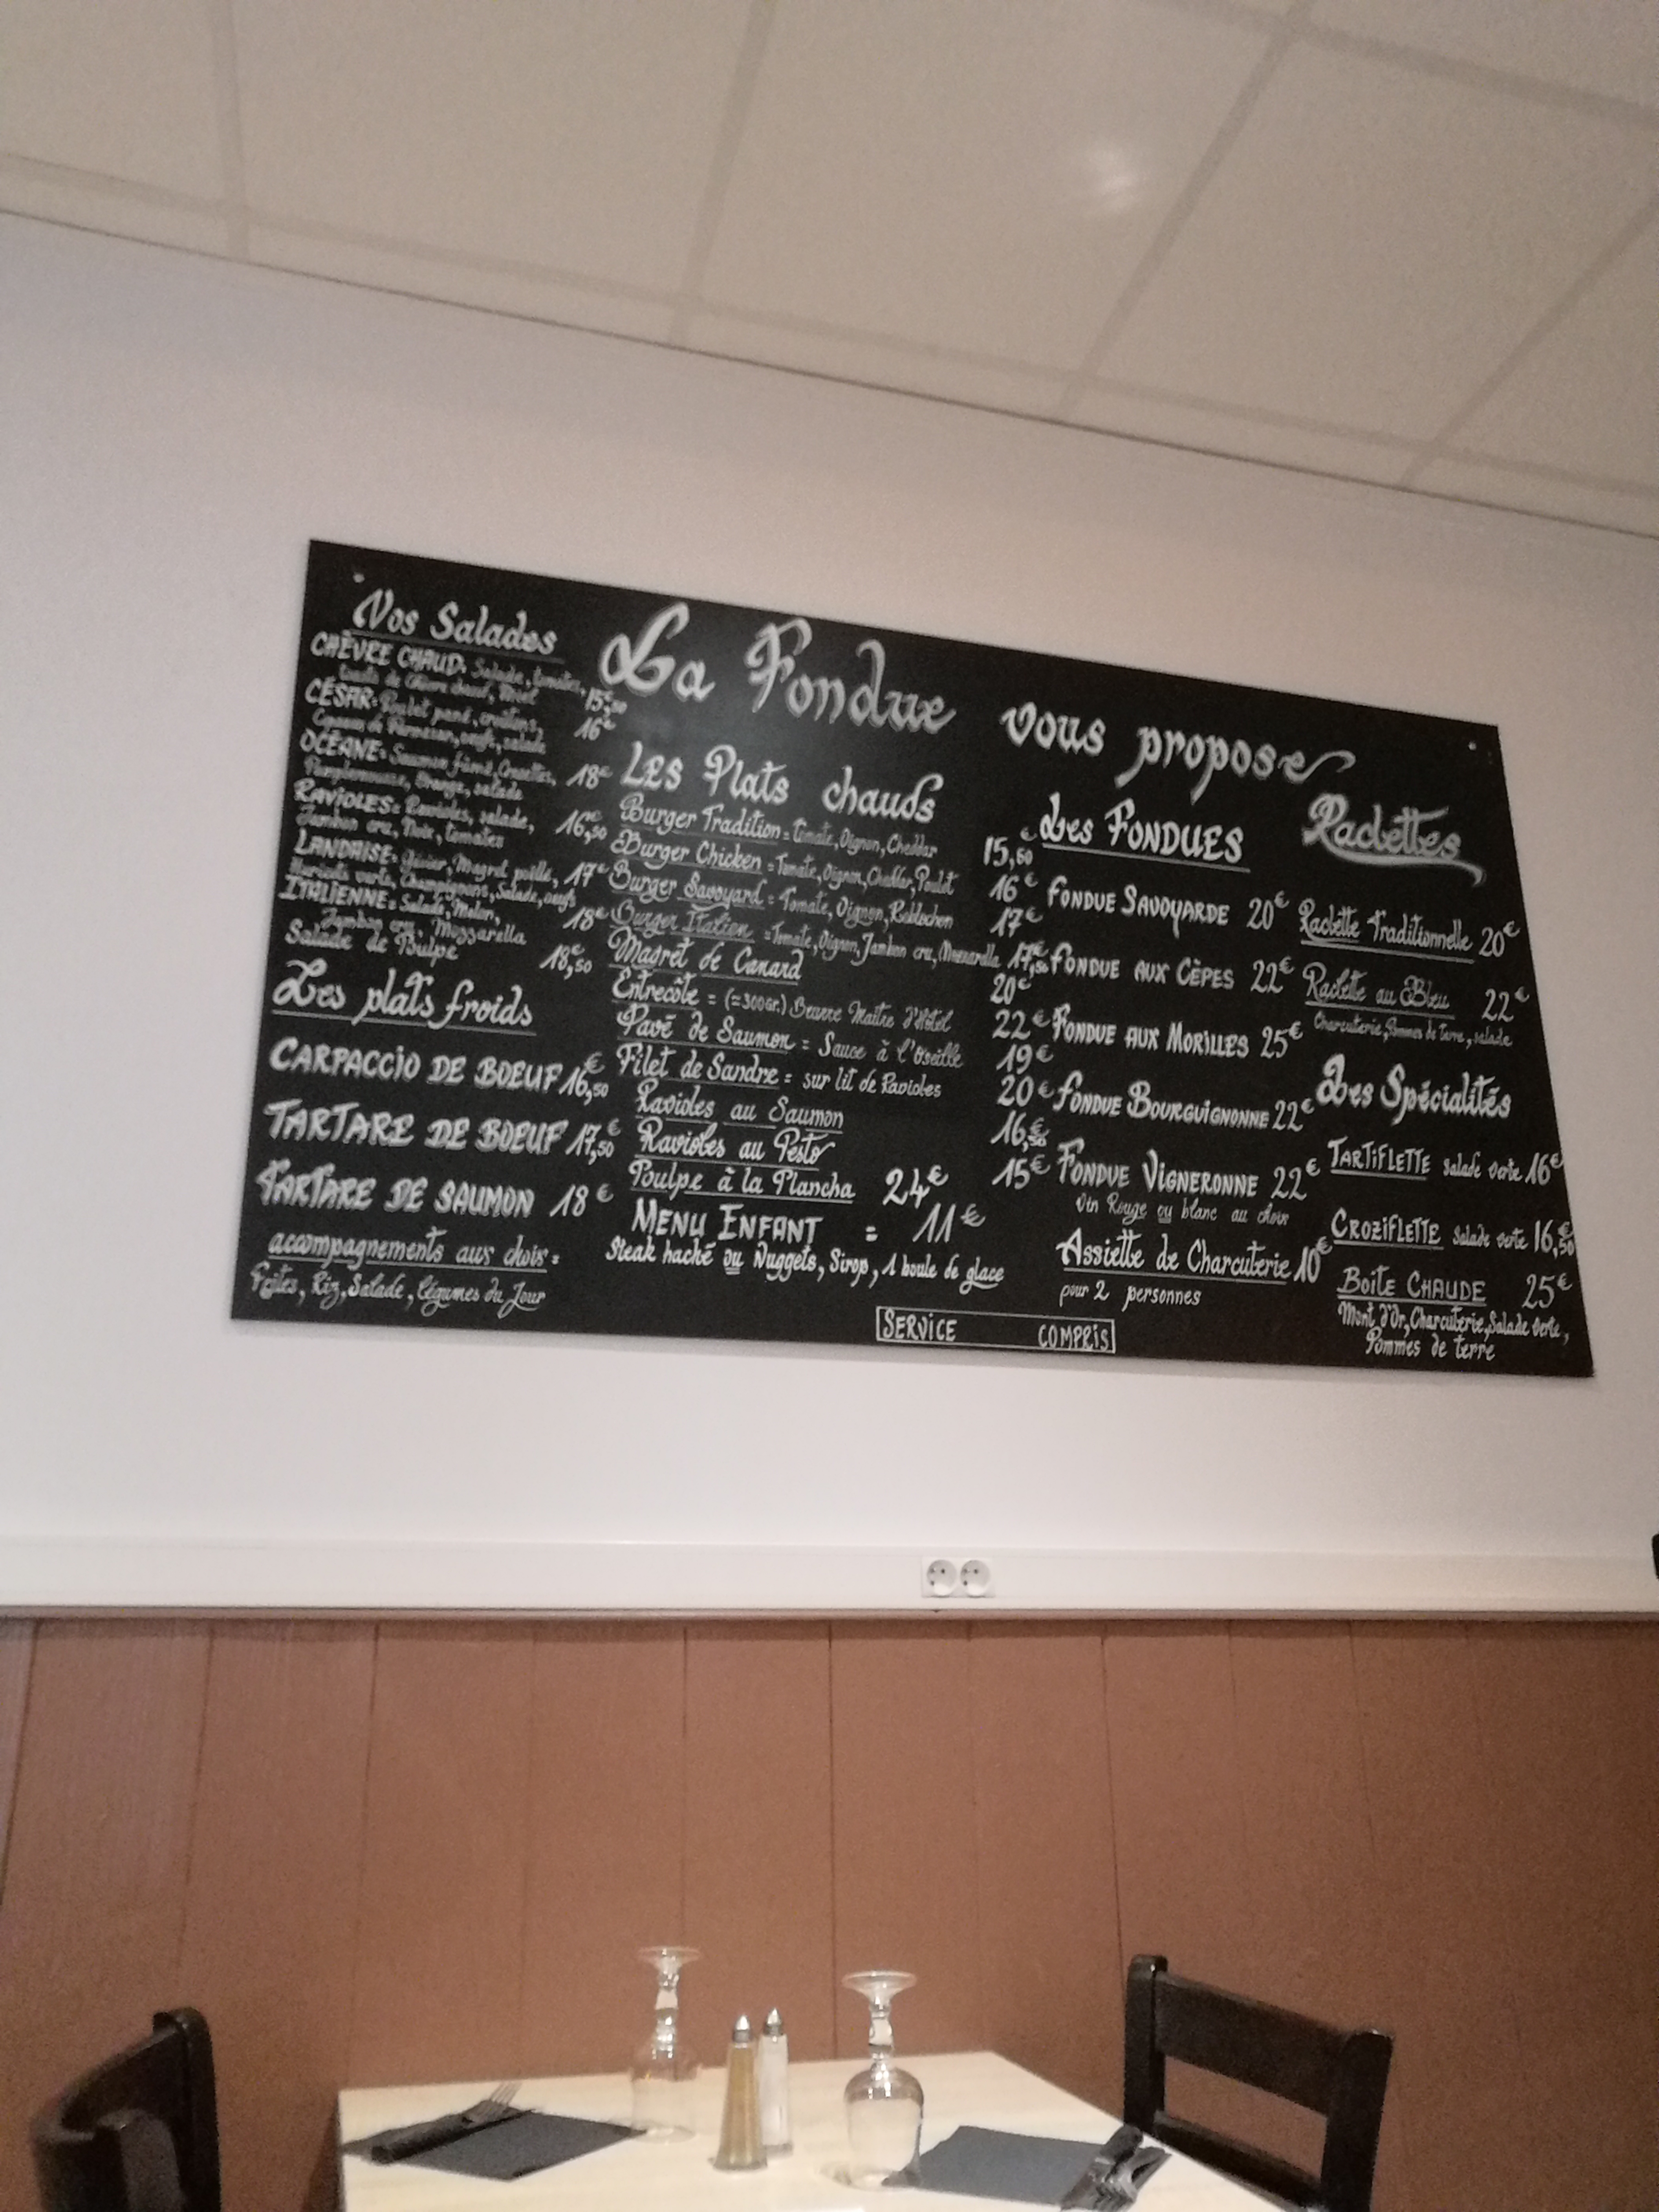 La Fondue vous propose
Nos Salades
CHÈVRE CHAUD: Salade, tomates,
toasts de Chèvre chaud, Miel 15,50
CÉSAR: Poulet pané, croûtons, 16€
Copeaux de Parmesan, oeufs, salade
OCÉANE: Saumon fumé, Crevettes, 18€
Pamplemousse, Orange, salade
RAVIOLES: Ravioles, salade, 16,50€
Jambon cru, Noix, tomates
LANDAISE: Gésier, Magret, 17€
Haricots verts, Champignons, Salade, oeufs
ITALIENNE: Salade, Melon, 18€
Jambon cru, Mozzarella
Salade de Poulpe 18,50€
Les plats froids
CARPACCIO DE BOEUF 16,50€
TARTARE DE BOEUF 17,50€
TARTARE DE SAUMON 18€
accompagnements aux choix:
Frites, Riz, Salade, légumes du Jour
LES Plats chauds
Burger Tradition = Tomate, Oignon, Cheddar 15,50€
Burger Chicken = Tomate, Oignon, Cheddar, Poulet 16€
Burger Savoyard = Tomate, Oignon, Reblochon 17€
Burger Italien = Tomate, Oignon, Jambon cru, Mozzarella 17,50€
Magret de Canard 20€
Entrecôte = (≈300gr.) Beurre Maître d'Hôtel 22€
Pavé de Saumon = Sauce à l'Oseille 19€
Filet de Sandre = sur lit de Ravioles 20€
Ravioles au Saumon 16,50€
Ravioles au Pesto 15€
Poulpe à la Plancha 24€
MENU ENFANT = 11€
Steak haché ou Nuggets, Sirop, 1 boule de glace
Les FONDUES
FONDUE SAVOYARDE 20€
FONDUE AUX CÈPES 22€
FONDUE AUX MORILLES 25€
FONDUE BOURGUIGNONNE 22€
FONDUE VIGNERONNE 22€
Vin Rouge ou blanc au choix
Assiette de Charcuterie 10€
pour 2 personnes
Raclettes
Raclette Traditionnelle 20€
Raclette au Bleu 22€
Charcuterie, Pommes de Terre, salade
Les Spécialités
TARTIFLETTE salade verte 16€
CROZIFLETTE salade verte 16,50€
BOITE CHAUDE 25€
Mont d'Or, Charcuterie, Salade verte,
Pommes de terre
SERVICE COMPRIS